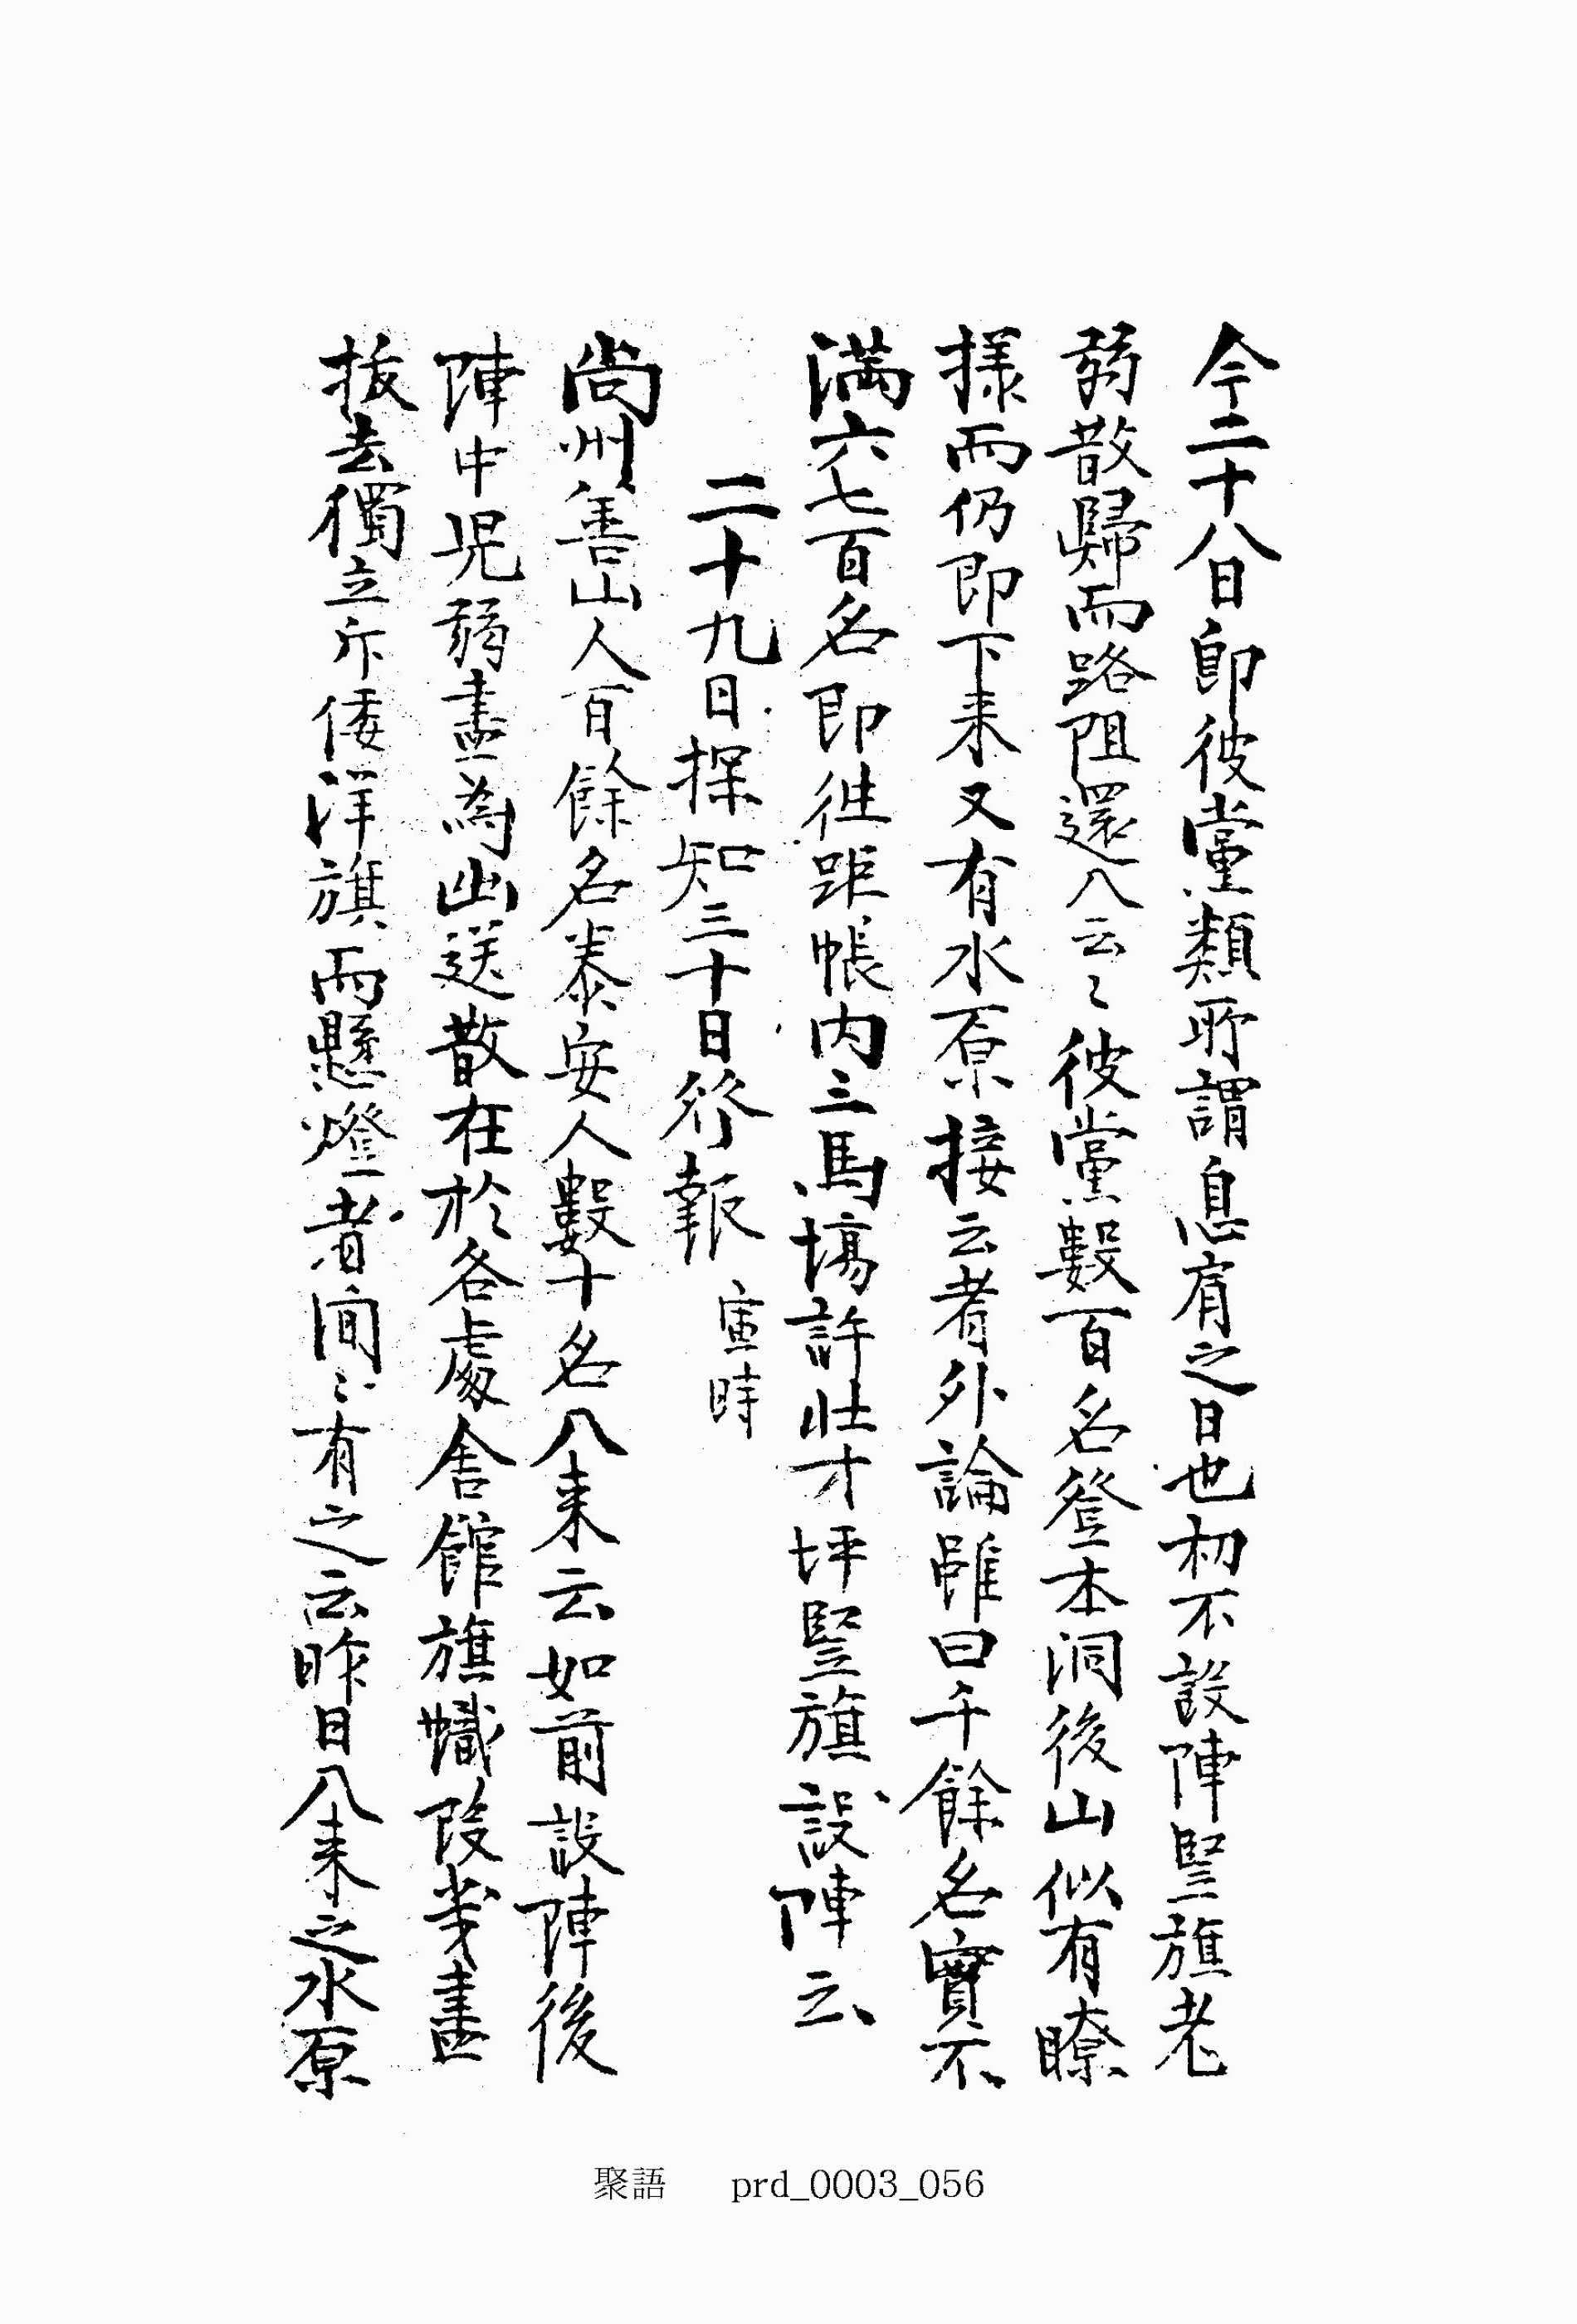 今二十八日卽彼黨類所謂息肩之日也初不設陣竪旗老
弱散歸而路阻還入云〻彼黨數百名登本洞後山似有瞭
㨾而仍即下来又有水原接云者外論雖曰千餘名實不
滿六七百名即徃距帳內三馬塲許壯才坪竪旗設陣云
二十九日探知三十日發報寅時
尙州善山人百餘名泰安人數十名入来云如前設陣後
陣中児弱盡為出送散在於各處舍館旗幟段幾盡
拔去獨立斥倭洋旗而懸燈者間〻有之云昨日入来之水原
聚語 prd_0003_056